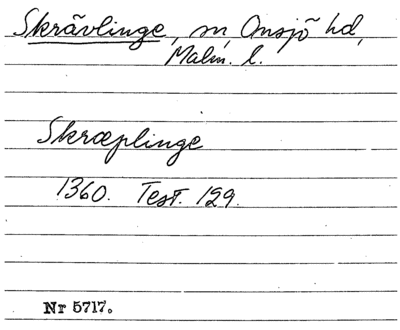 Skrävlinge, sn, Onsjö hd,
Malm. l.
Skræplinge
1360. Test. 129.
Nr 5717.